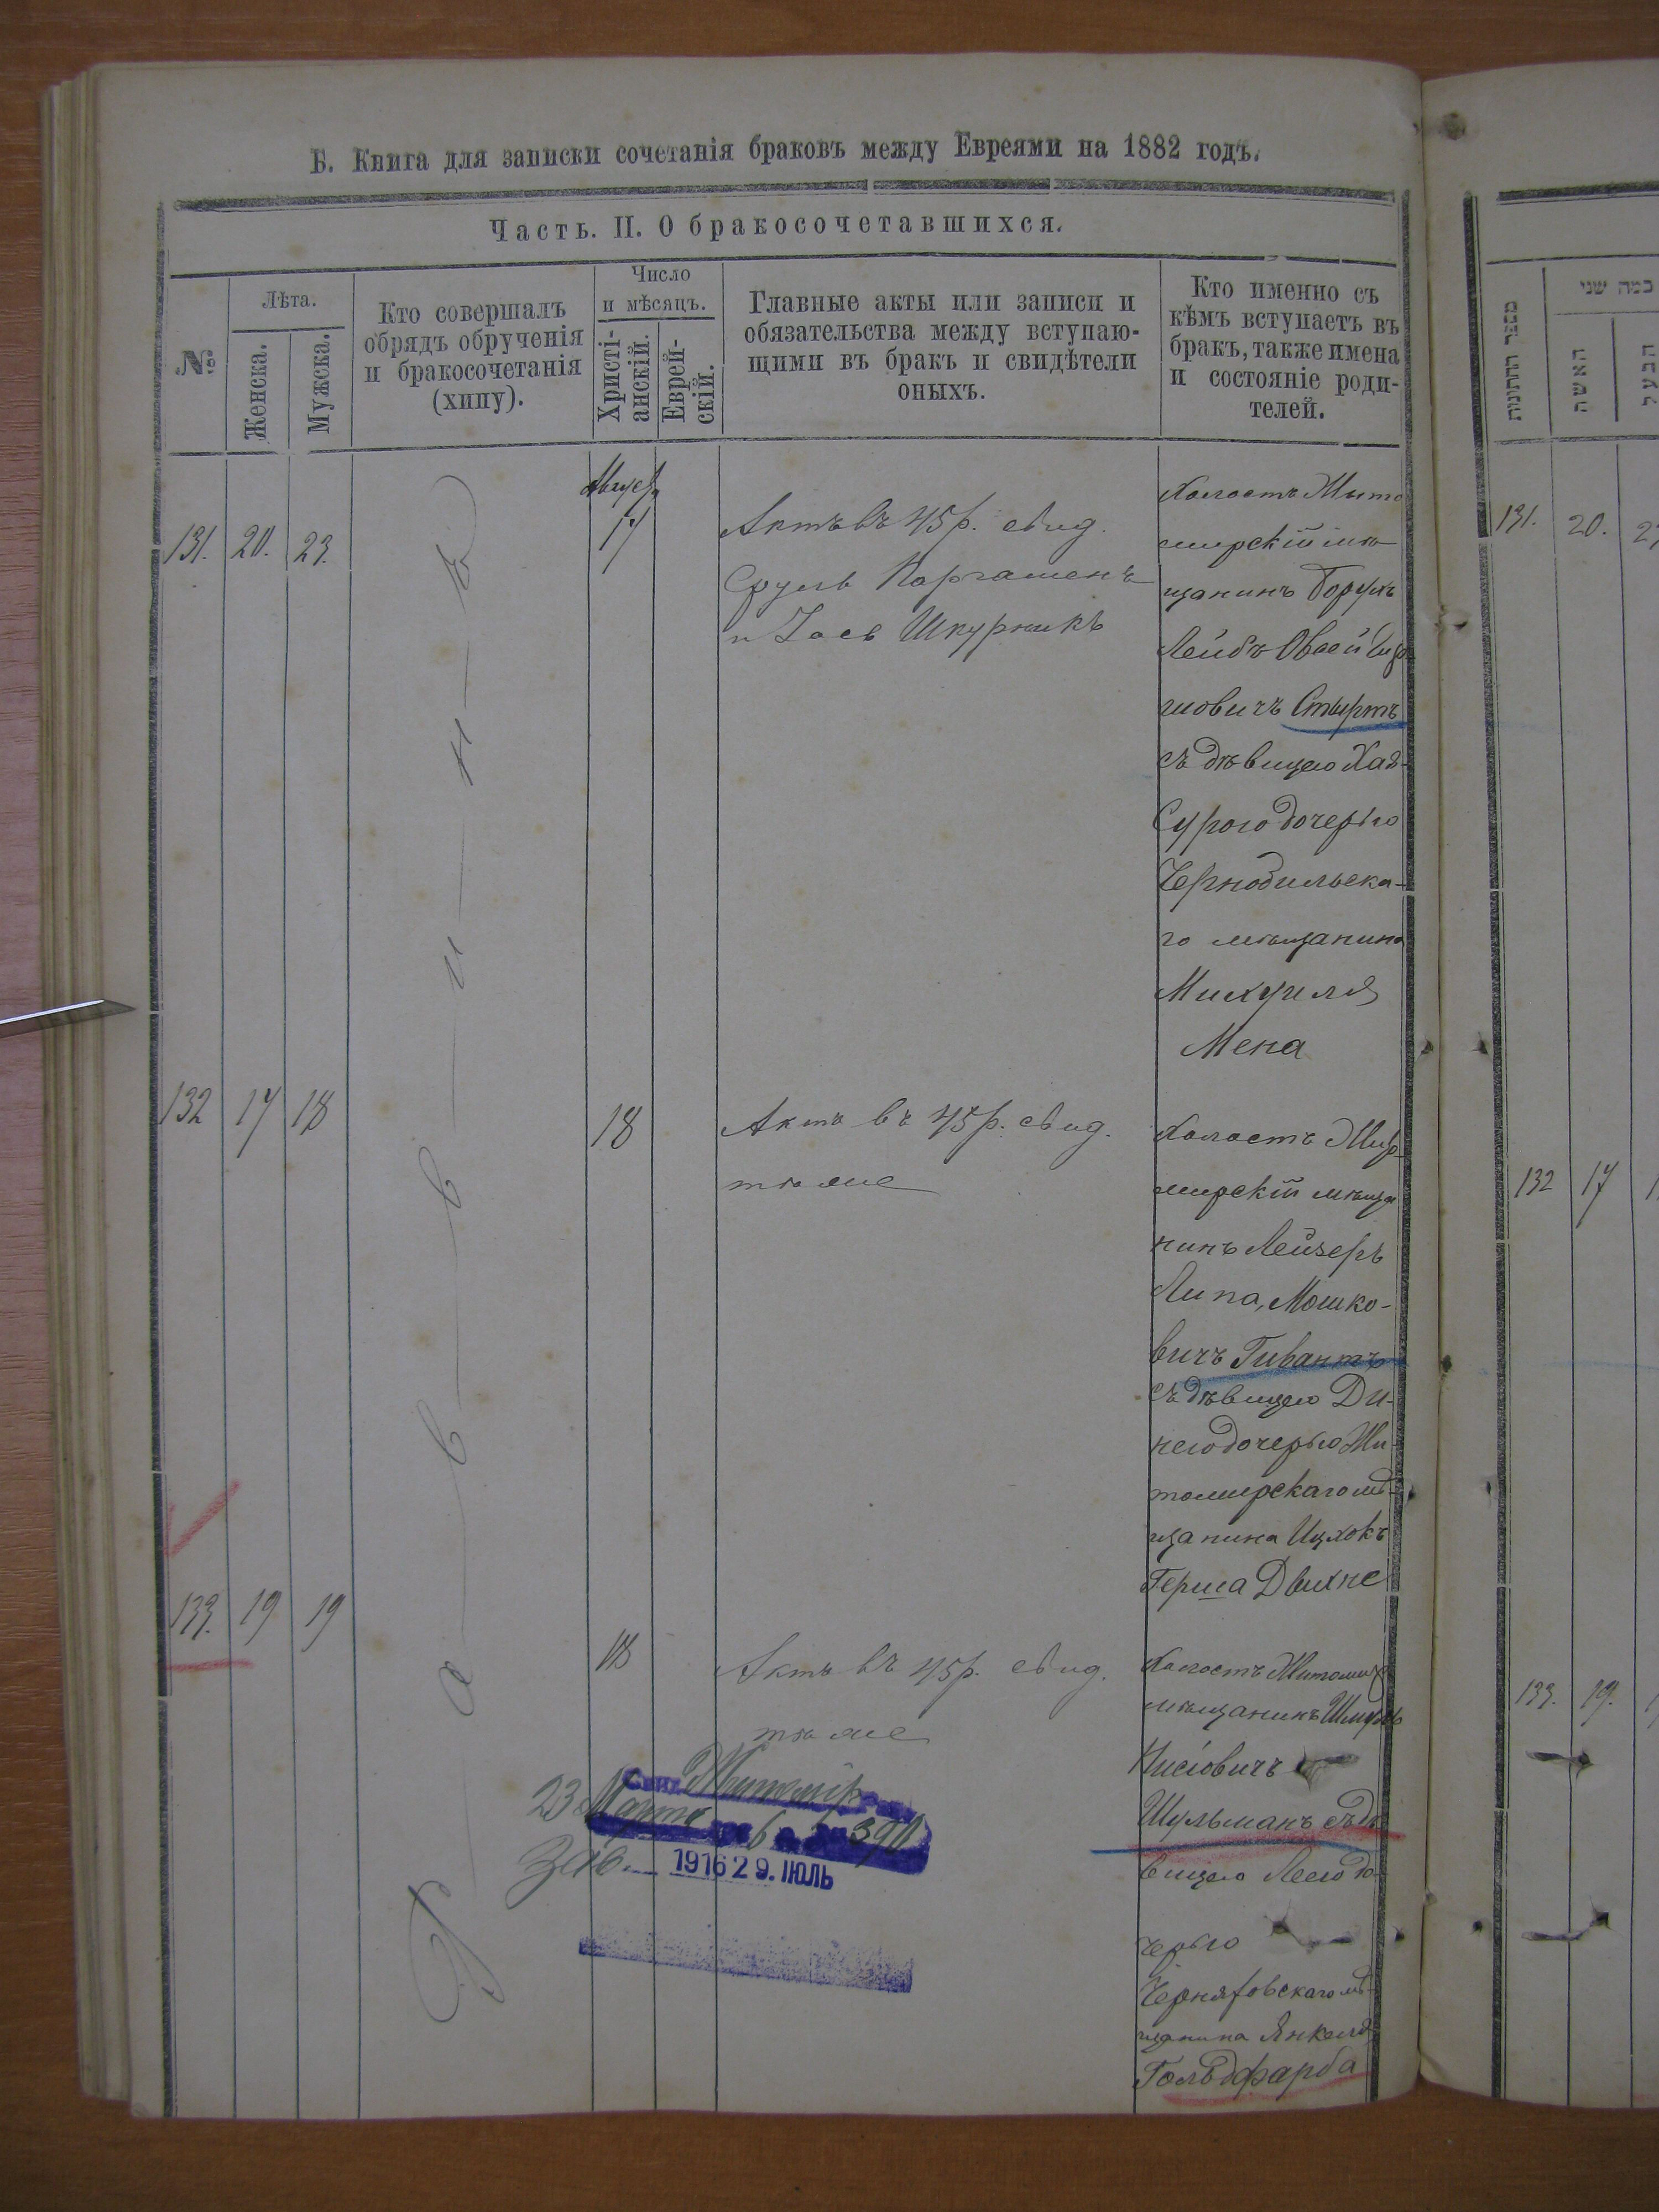 Б. Книга для записки сочетанія браковъ между Евреями на 1882 годъ.
Часть. II. О бракосочетавшихся.
№
Лѣта.
Женска.
Мужска.
Кто совершалъ
обрядъ обрученія
и бракосочетанія
(хипу).
Число
и мѣсяцъ.
Христі-
анскій.
Еврей-
скій.
Главные акты или записи и
обязательства между вступаю-
щими въ бракъ и свидѣтели
оныхъ.
Кто именно съ
кѣмъ вступаетъ въ
бракъ, также имена
и состояніе роди-
телей.
Раввинъ
131. 20. 23.
Августа
17
Актъ въ 45 р. свид.
Сруль Паргаменъ
и Іось Шкурникъ
Холостъ Жито
мирскій мѣ-
щанинъ Борухъ
Лейбъ Овсей Гер
шовичъ Стыртъ
съ дѣвицею Хая-
Сурою дочерью
Чернобильска-
го мѣщанина
Михуиля
Мена
132 17 18
18
Актъ въ 45 р. свид.
тѣ же
Холостъ
мирскій мѣща
нинъ Лейзеръ
Липа, Мошко-
вичъ Гивантъ
съ дѣвицею Ди-
нею дочерью Жи-
томирскаго мѣ-
щанина Ицхокъ
Герша Двихне
133. 19 19
18
Актъ въ 45 р. свид.
тѣ же
Холостъ Житомир
мѣщанинъ Шмуль
Нисіовичъ
Шульманъ съ дѣ
вицею Леею до-
черью
Черняховскаго мѣ-
щанина Янкеля
Гольдфарба
Житомір
23 Марта 6 390
1916 29. ІЮЛЬ
במה שני
האשה
הבעל
131. 20.
132 17
133. 19.